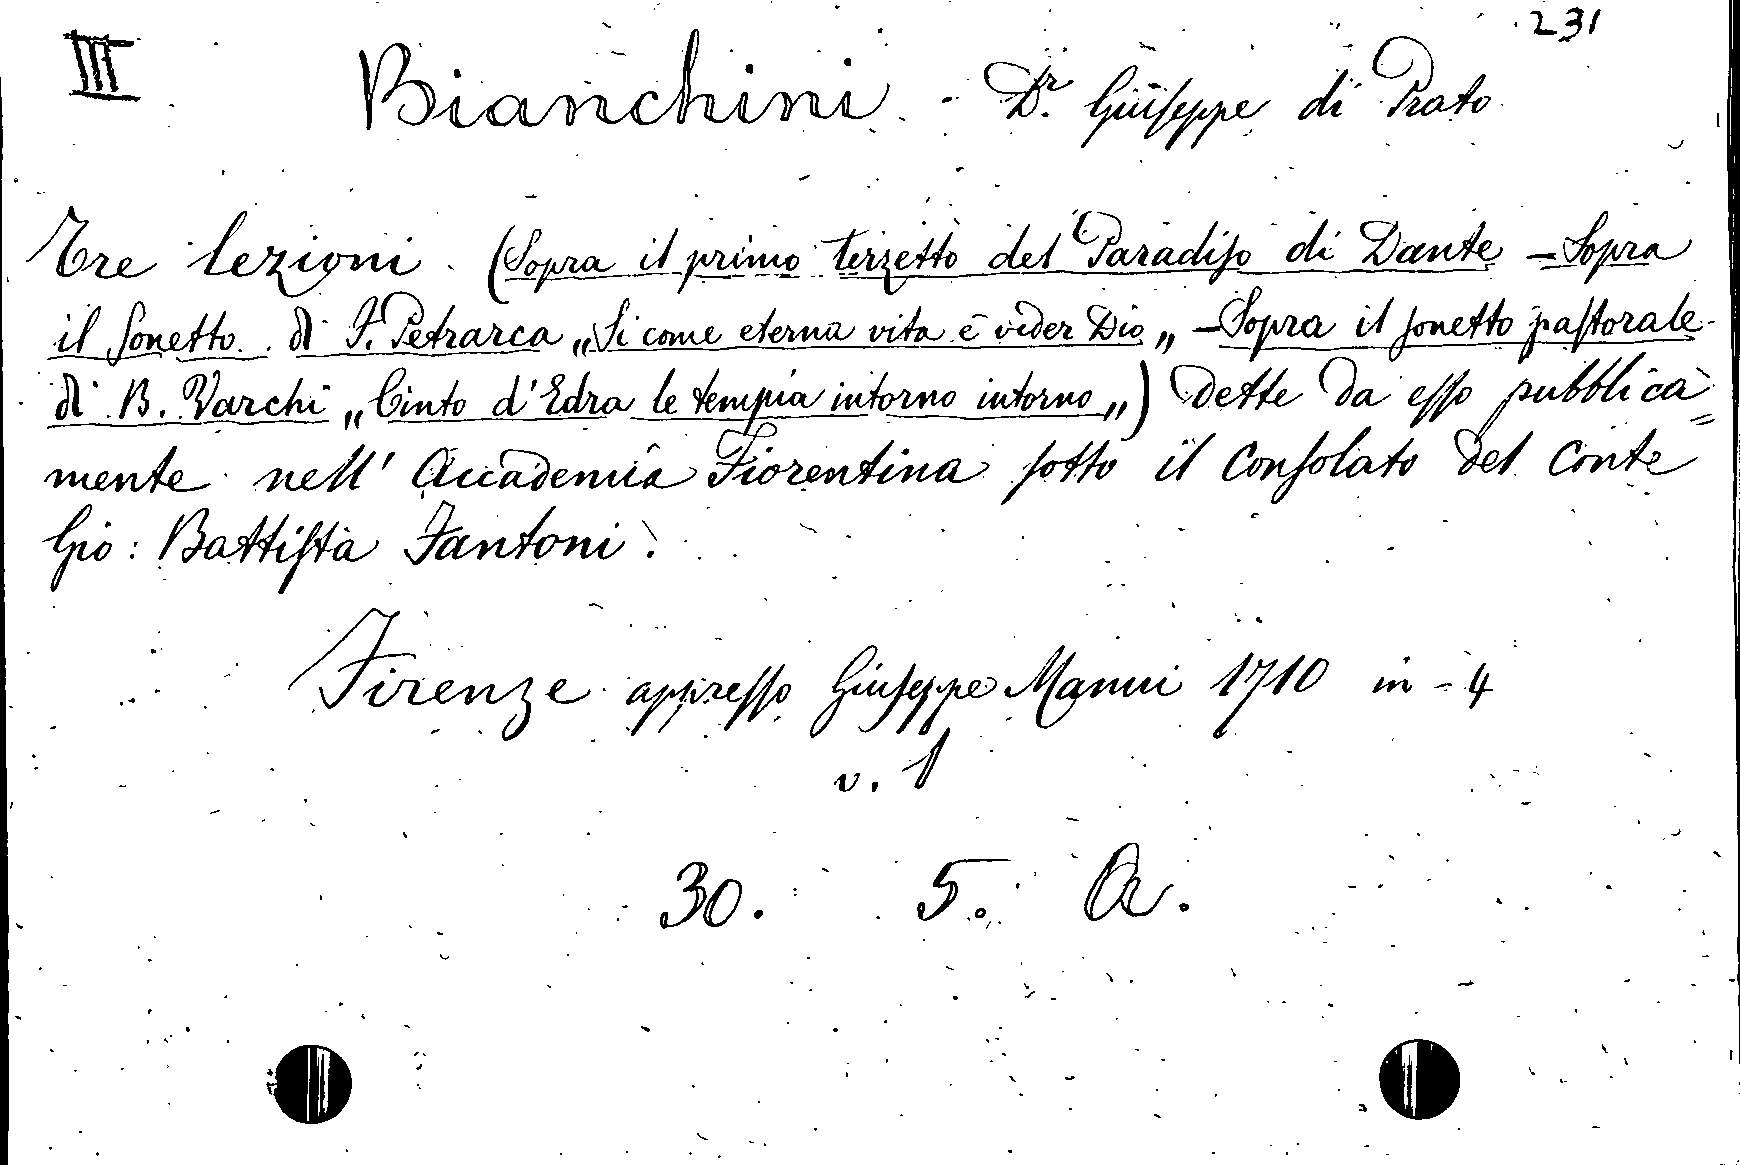 231
III Bianchini - Dr. Giuseppe di Prato
Tre lezioni. (Sopra il primo terzetto del Paradiso di Dante - Sopra
il Sonetto di F. Petrarca „Si come eterna vita è veder Dio„ - Sopra il sonetto pastorale
di B. Varchi „Cinto d'Edra le tempia intorno intorno„) dette da esso pubblica=
mente nell' Accademia Fiorentina sotto il Consolato del Conte
Gio: Battista Fantoni.
Firenze appresso Giuseppe Manni 1710 in-4
v. 1
30. 5. A.